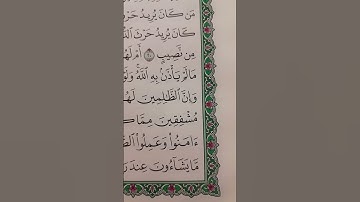 مَن كَانَ يُرِيدُ حَرْ
كَانَ يُرِيدُ حَرْثَ
مِن نَّصِيبٍ ٢٠ أَمْ لَهُ
مَا لَمْ يَأْذَنۢ بِهِ ٱللَّهُ وَلَوْ
وَإِنَّ ٱلظَّٰلِمِينَ لَهُ
مُشْفِقِينَ مِمَّا
ءَامَنُوا۟ وَعَمِلُوا۟
مَّا يَشَآءُونَ عِندَ